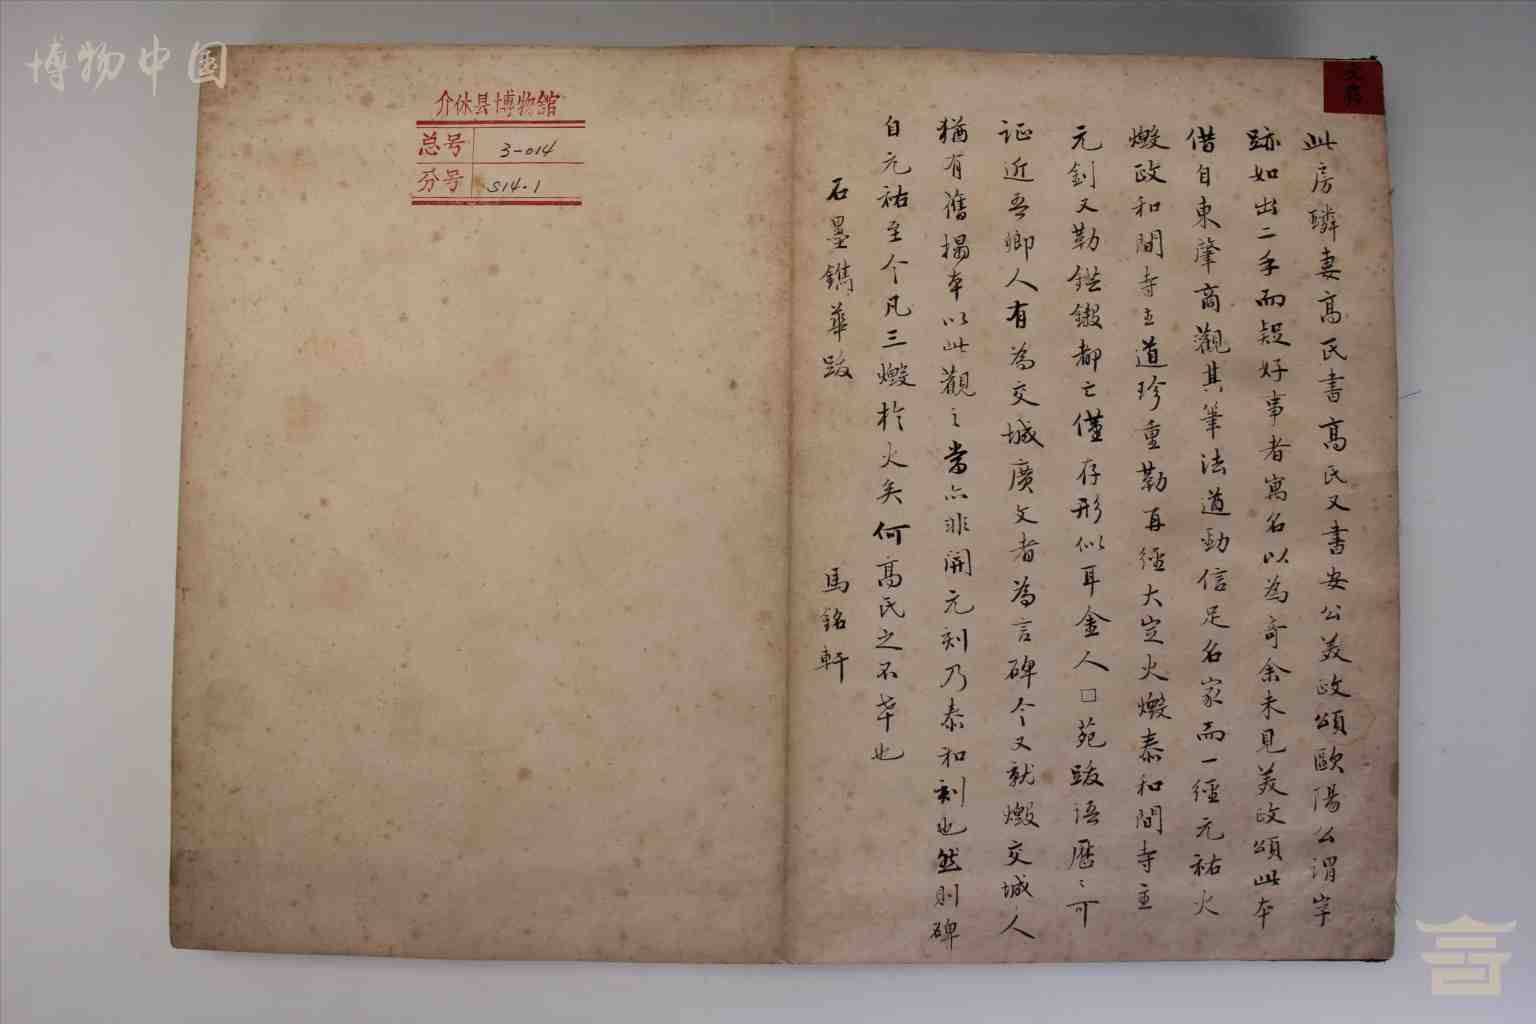 博物中国
介休县博物館
总号 3-014
分号 S14.1
此房驎妻高氏書高氏又書安公美政頌歐陽公謂字
跡如出二手而疑好事者寓名以為奇余未見美政頌此本
借自東肇商觀其筆法遒勁信足名家而一經元祐火
燬政和間寺主道珍重勒再經大定火燬泰和間寺主
元釗又勒鋩鎩都亡僅存形似耳金人□苑跋語歷〻可
証近吾鄉人有為交城廣文者為言碑今又就燬交城人
猶有舊搨本以此觀之當亦非開元刻乃泰和刻也然則碑
自元祐至今凡三燬於火矣何高氏之不幸也
石墨鐫華跋
馬銘軒